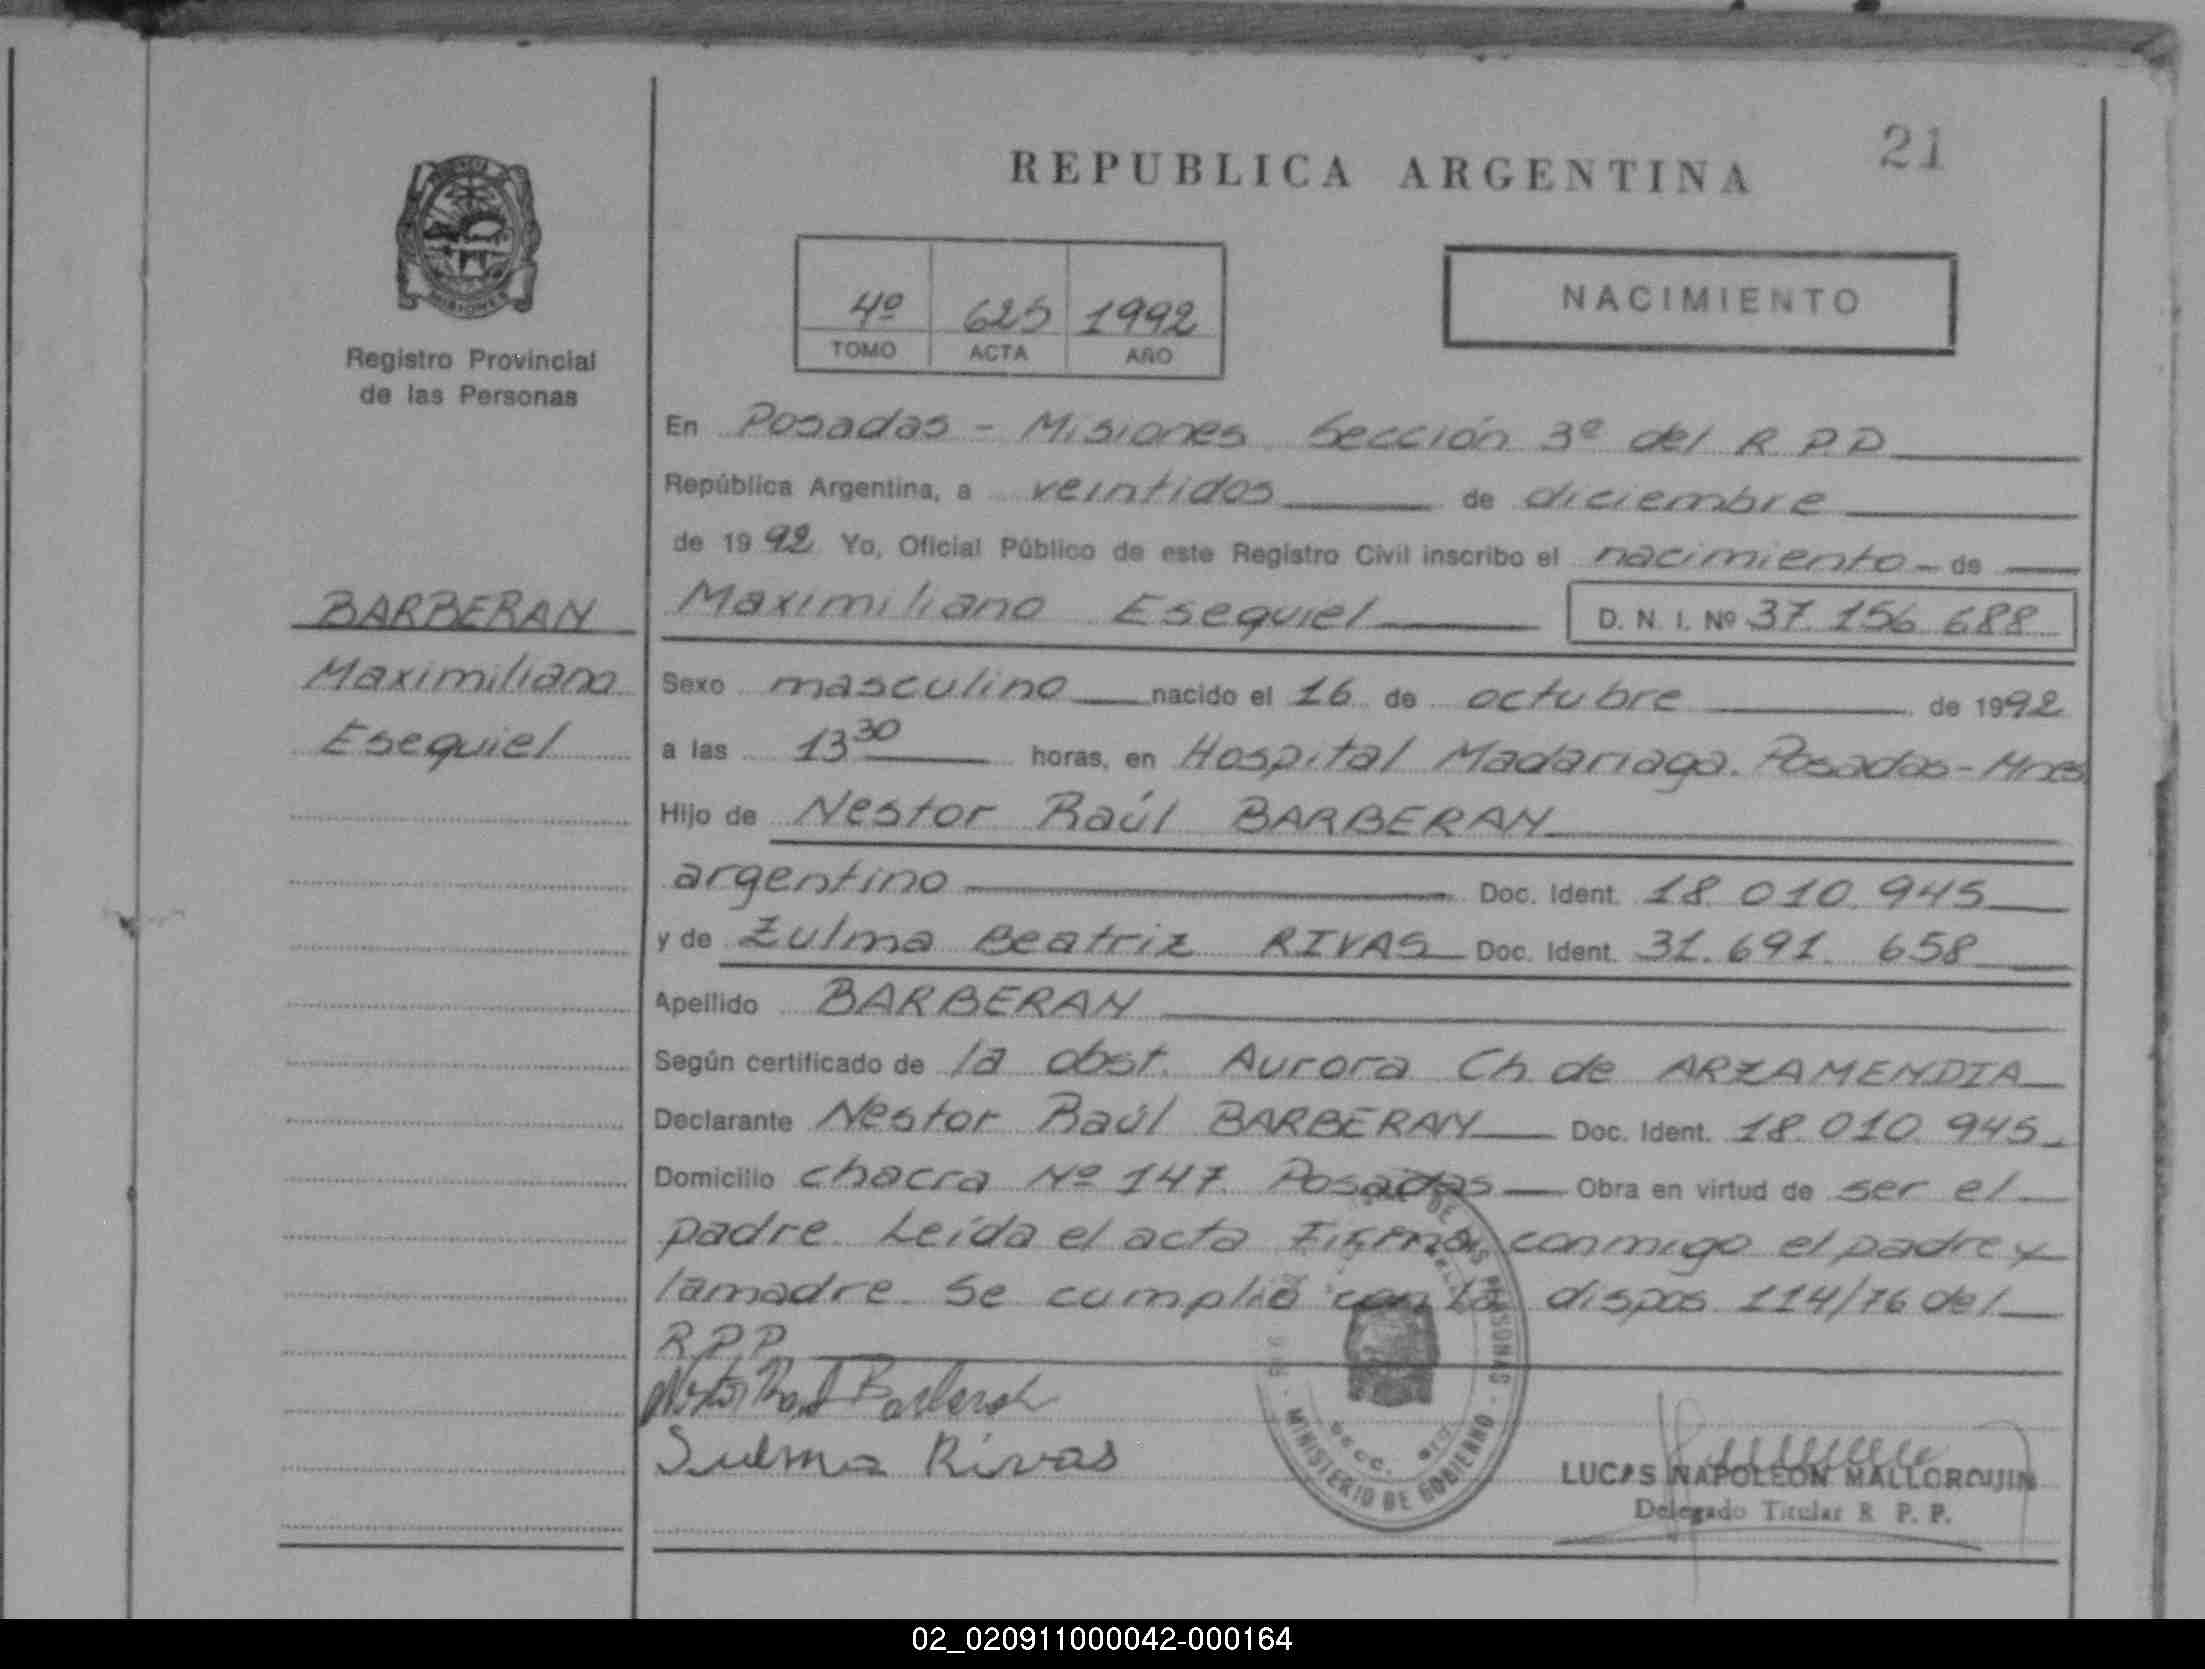 REPUBLICA ARGENTINA
21
4º 625 1992
TOMO ACTA AÑO
NACIMIENTO
MISIONES
Registro Provincial
de las Personas
BARBERAN
Maximiliano
Esequiel
En Posadas - Misiones Sección 3º del R P P
República Argentina, a veintidos de diciembre
de 1992 Yo, Oficial Público de este Registro Civil inscribo el nacimiento - de
Maximiliano Esequiel D. N. I. Nº 37.156 688
Sexo masculino nacido el 16 de octubre de 1992
a las 13 30 horas, en Hospital Madariaga. Posadas - Mnes
Hijo de Nestor Raúl BARBERAN
argentino Doc. Ident. 18.010.945
y de Zulma Beatriz RIVAS Doc. Ident. 31.691.658
Apellido BARBERAN
Según certificado de la obst. Aurora Ch de ARZAMENDIA
Declarante Nestor Raúl BARBERAN Doc. Ident. 18.010.945
Domicilio chacra Nº 147. Posadas Obra en virtud de ser el
padre. Leída el acta Firman conmigo el padre y
la madre. Se cumplió con la dispos 114/76 del
R.P.P
Nestor Raul Barberan
Sulma Rivas
DE LAS PERSONAS - MINISTERIO DE GOBIERNO
LUCAS NAPOLEON MALLORQUIN
Delegado Titular R. P. P.
02_020911000042-000164